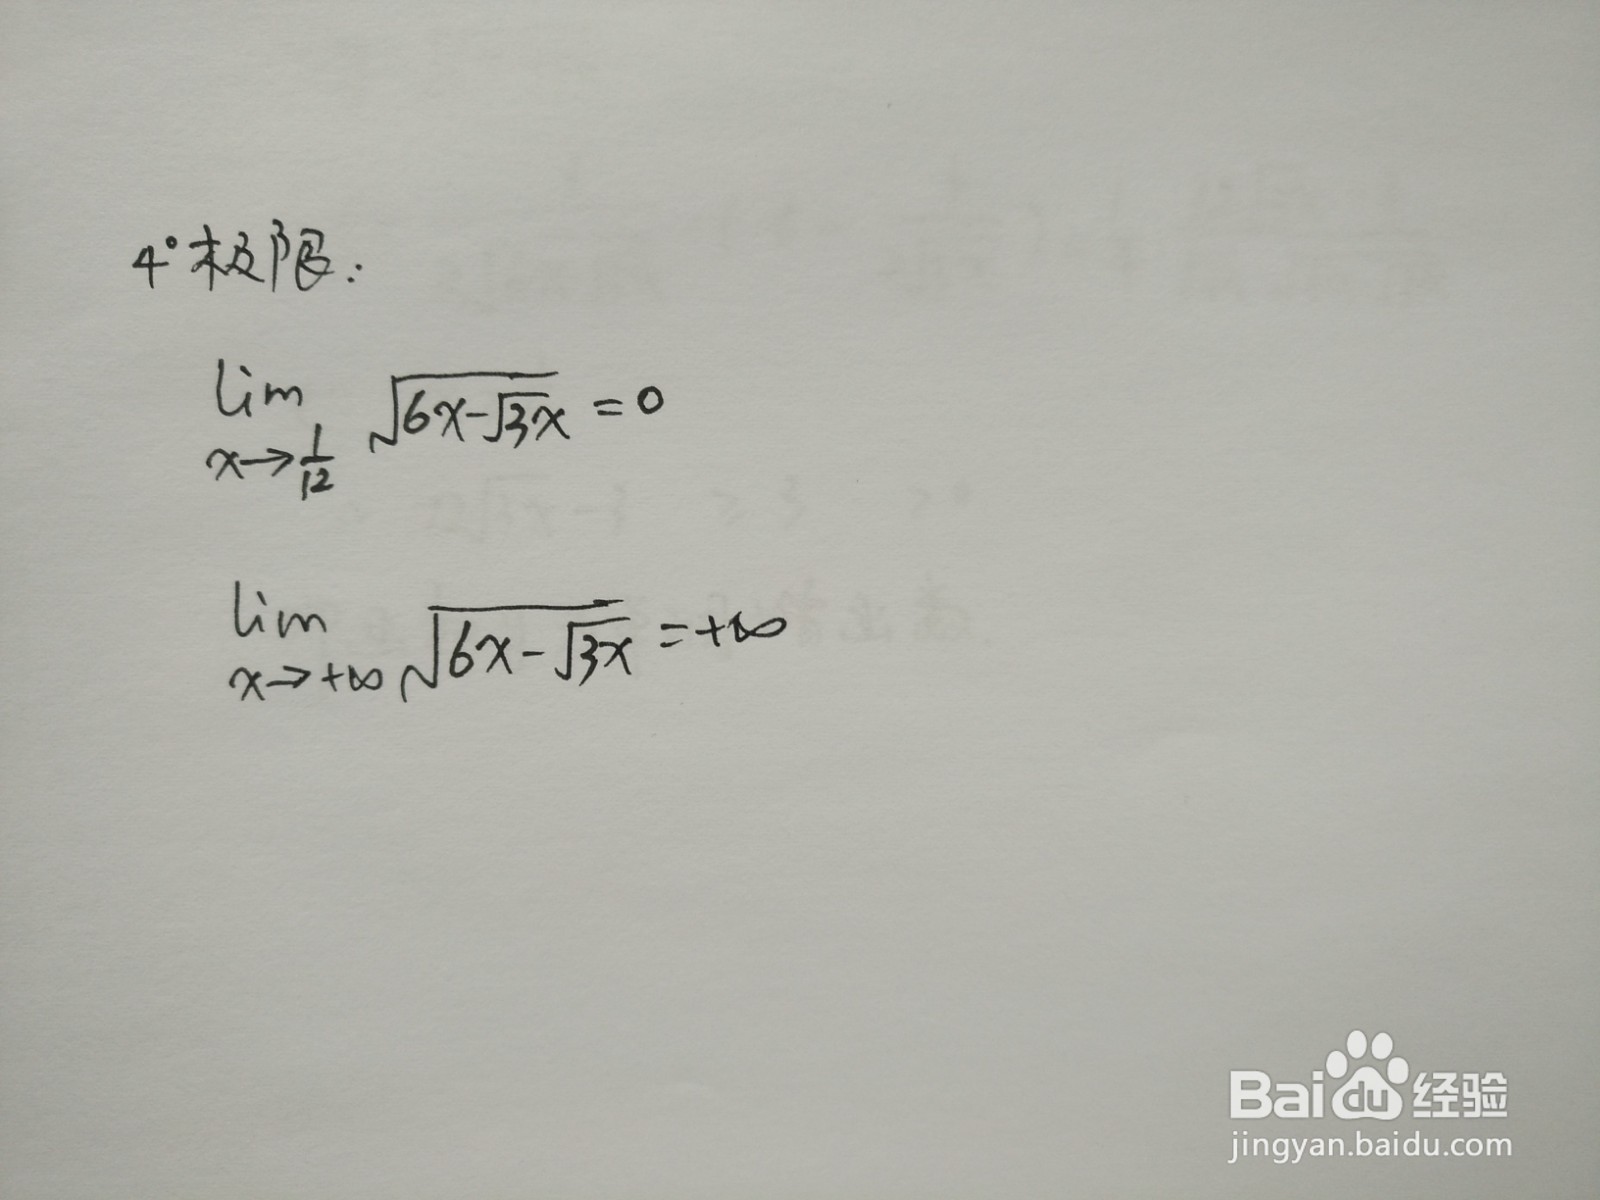 4°极限:
lim
x→1/12 √(6x-√3x) = 0
lim
x→+∞ √(6x-√3x) = +∞
Baidu经验
jingyan.baidu.com